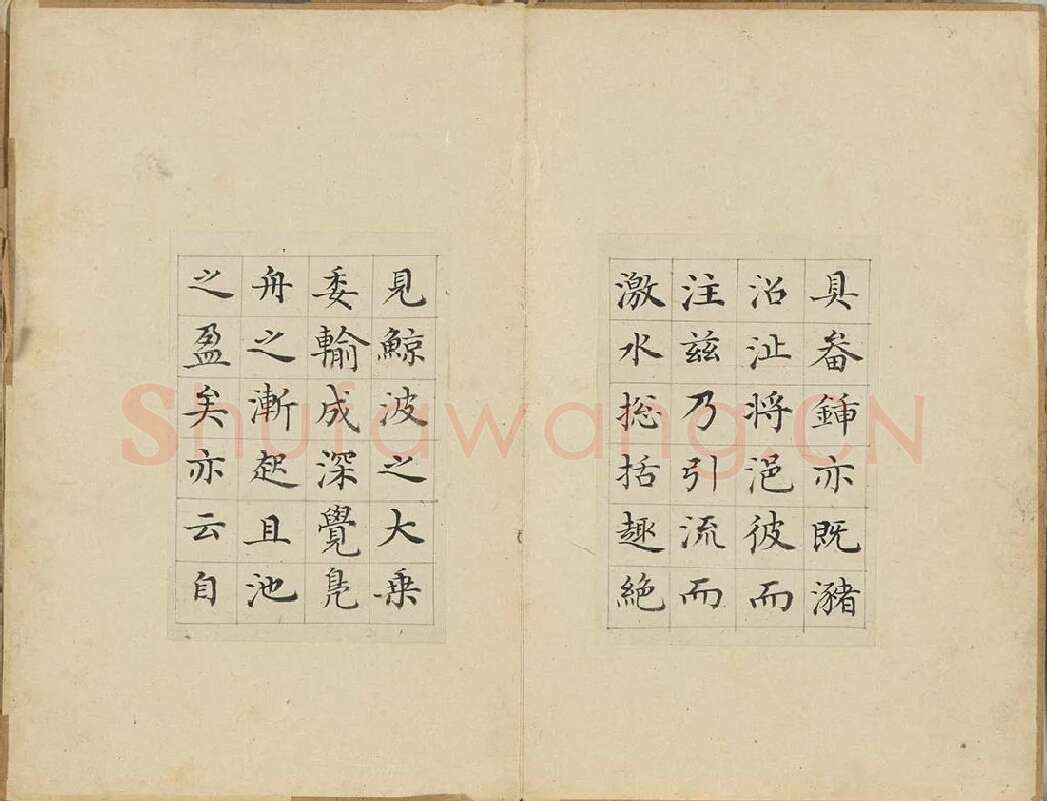 具畚鍤亦既瀦
沿沚將浥彼而
注茲乃引流而
激水捴括趣絶
見鯨波之大乗
委輸成深覺鳧
舟之漸起且池
之盈矣亦云自
Shufawang.CN